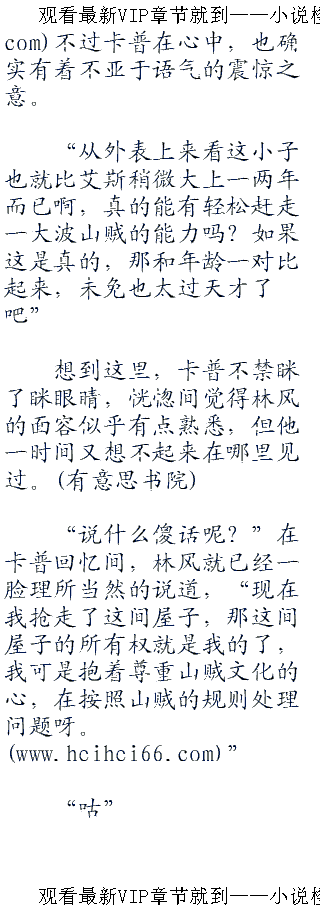 观看最新VIP章节就到——小说
com)不过卡普在心中，也确
实有着不亚于语气的震惊之
意。
“从外表上来看这小子
也就比艾斯稍微大上一两年
而已啊，真的能有轻松赶走
一大波山贼的能力吗？如果
这是真的，那和年龄一对比
起来，未免也太过天才了
吧”
想到这里，卡普不禁眯
了眯眼睛，恍惚间觉得林风
的面容似乎有点熟悉，但他
一时间又想不起来在哪里见
过。(有意思书院)
“说什么傻话呢？”在
卡普回忆间，林风就已经一
脸理所当然的说道，“现在
我抢走了这间屋子，那这间
屋子的所有权就是我的了，
我可是抱着尊重山贼文化的
心，在按照山贼的规则处理
问题呀。
(www.hcihci66.com)”
“咕”
观看最新VIP章节就到——小说